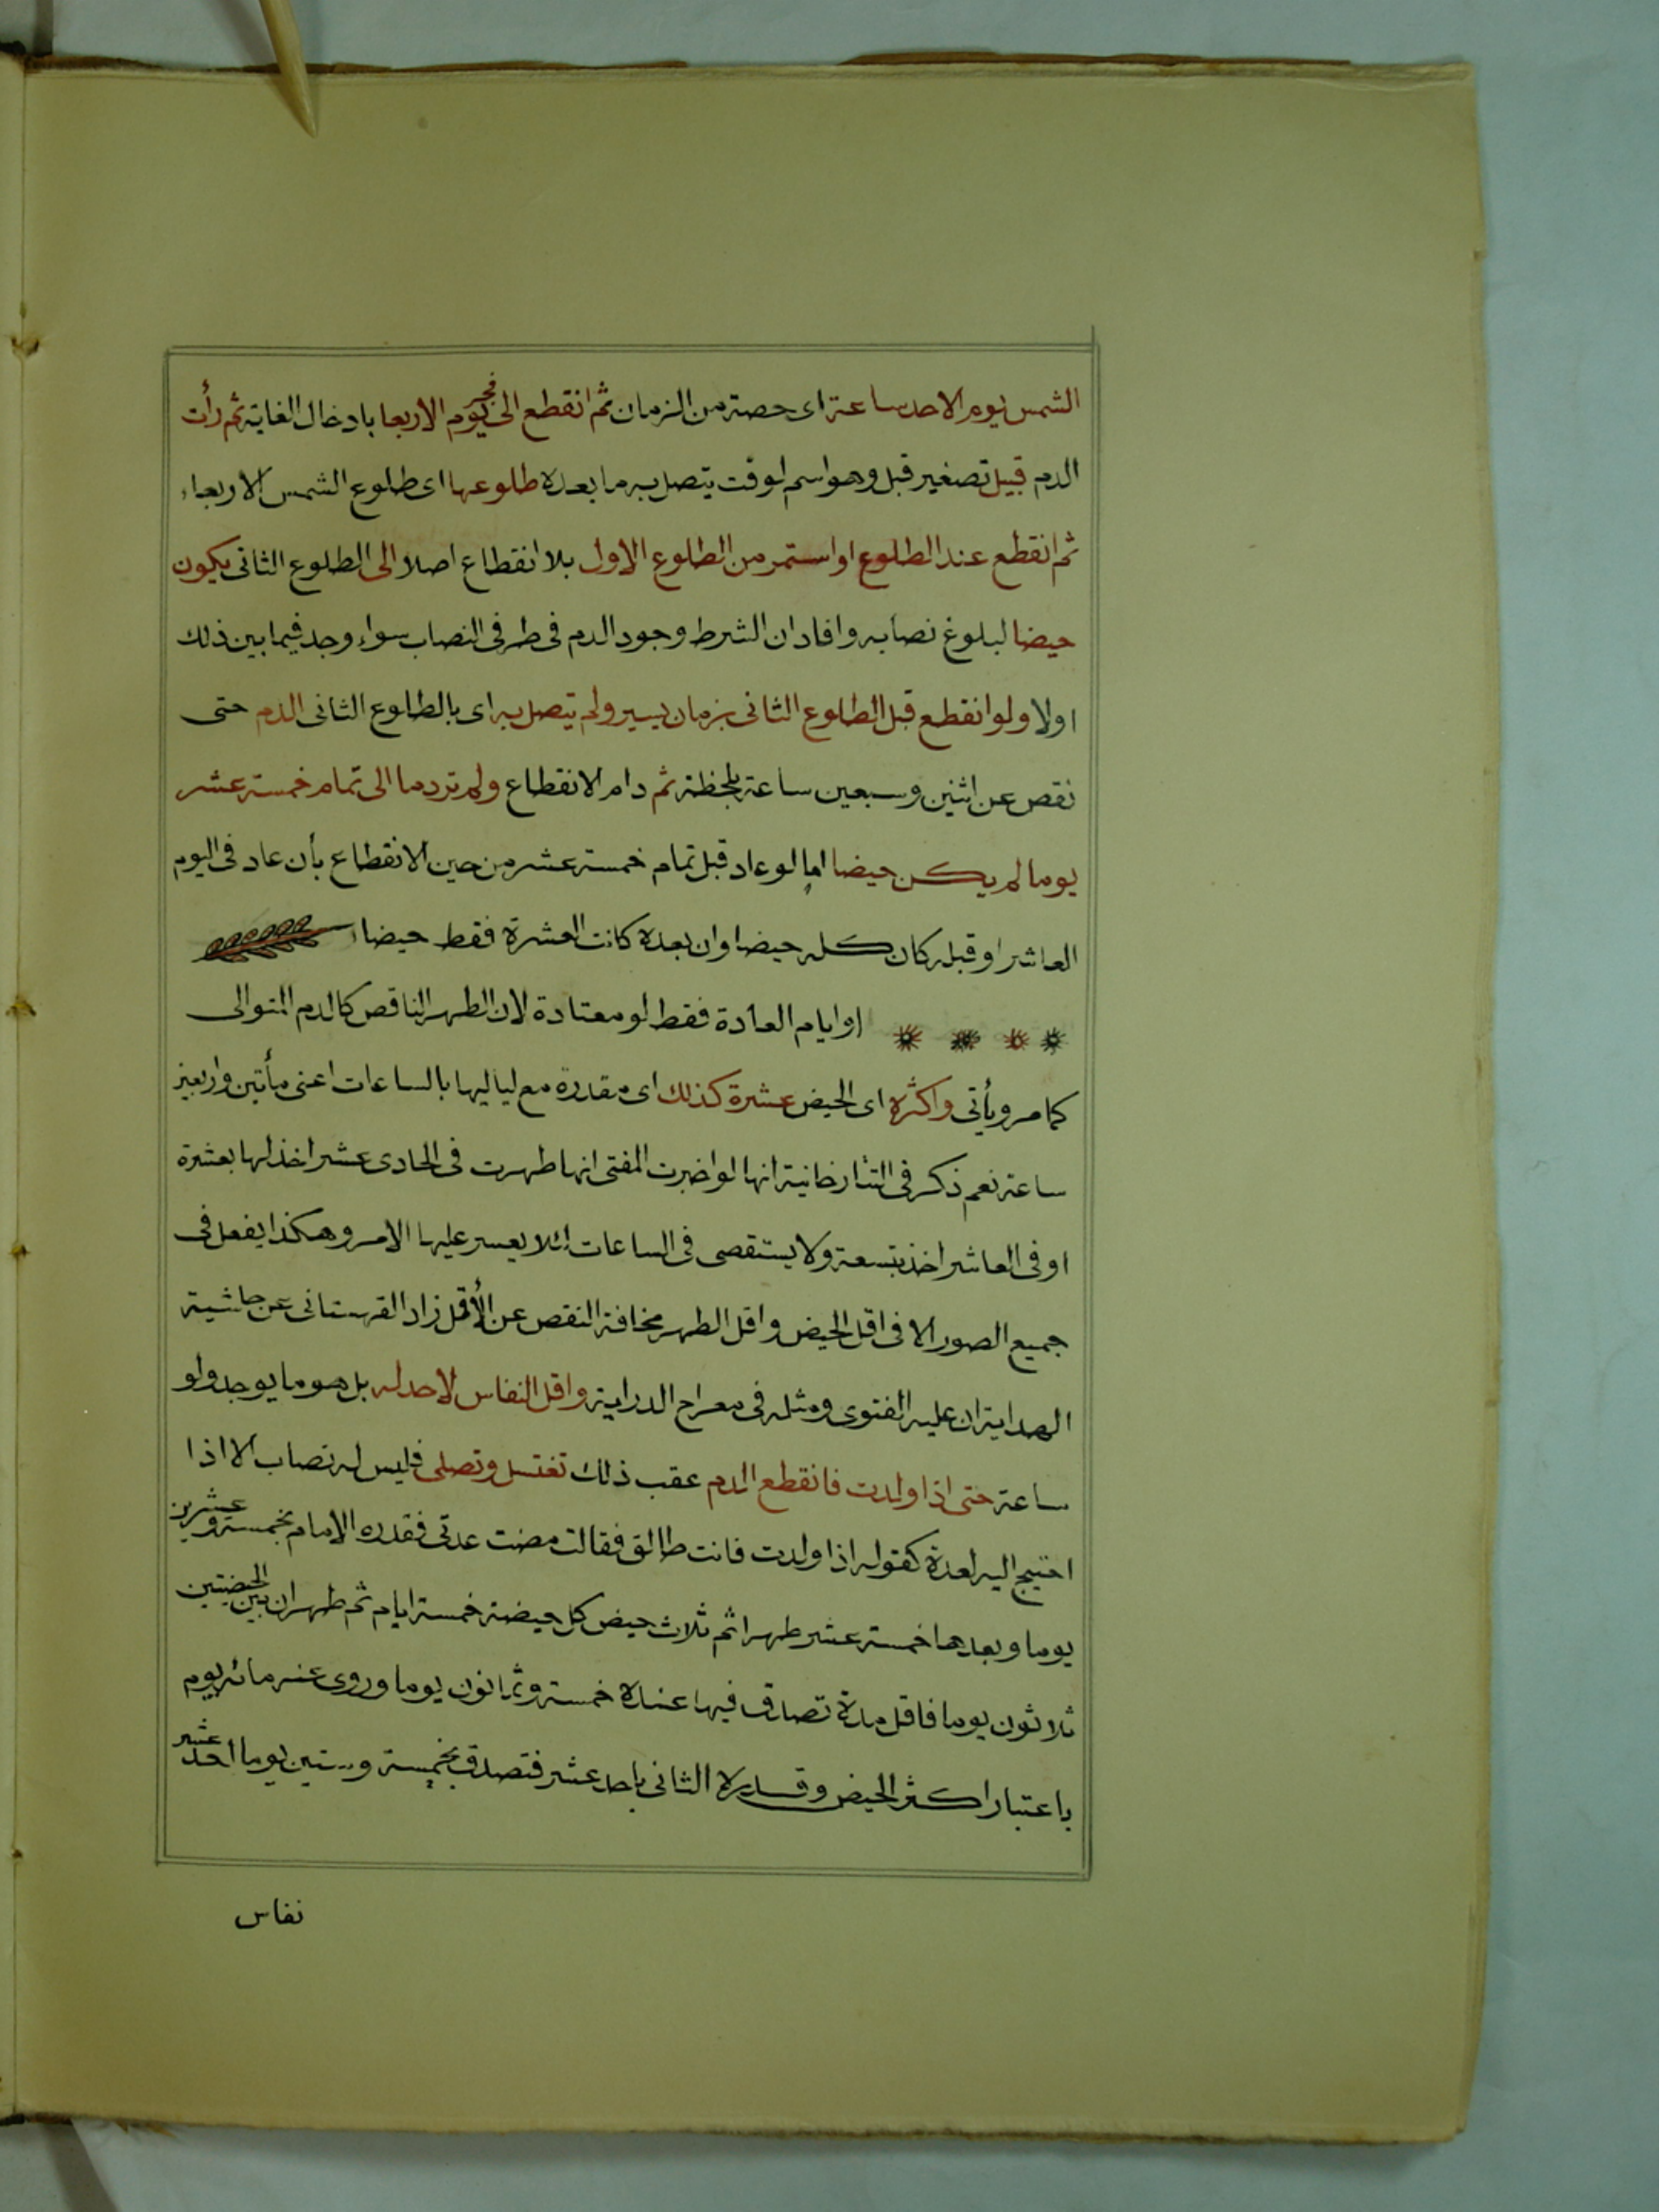 الشمس يوم الاحد ساعة اى حصة من الزمان ثم انقطع الى فجر يوم الاربعا بادخال الغاية ثم رأت
الدم قبيل تصغير قبل وهو اسم لوقت يتصل به ما بعده طلوعها اى طلوع الشمس الاربعاء
ثم انقطع عند الطلوع او استمر من الطلوع الاول بلا انقطاع اصلا الى الطلوع الثانى يكون
حيضا لبلوغ نصابه وافاد ان الشرط وجود الدم فى طرفى النصاب سواء وجد فيما بين ذلك
اولا ولو انقطع قبل الطلوع الثانى بزمان يسير ولم يتصل به اى بالطلوع الثانى الدم حتى
نقص عن اثنين وسبعين ساعة بلحظة ثم دام الانقطاع ولم تر دما الى تمام خمسة عشر
يوما لم يكن حيضا اما لو عاد قبل تمام خمسة عشر من حين الانقطاع بأن عاد فى اليوم
العاشر او قبله كان كله حيضا وان بعده كانت العشرة فقط حيضا
او ايام العادة فقط لو معتادة لان الطهر الناقص كالدم المتوالى
كما مر ويأتى واكثره اى الحيض عشرة كذلك اى مقدرة مع لياليها بالساعات اعنى مأتين واربعين
ساعة نعم ذكر فى التتارخانية انها لو اخبرت المفتى انها طهرت فى الحادى عشر اخذ لها بعشرة
او فى العاشر اخذ بتسعة ولا يستقصى فى الساعات لئلا يعسر عليها الامر وهكذا يفعل فى
جميع الصور الا فى اقل الحيض واقل الطهر مخافة النقص عن الأقل زاد القهستانى عن حاشية
الهداية ان عليه الفتوى ومثله فى معراج الدراية واقل النفاس لا حد له بل هو ما يوجد ولو
ساعة حتى اذا ولدت فانقطع الدم عقب ذلك تغتسل وتصلى فليس له نصاب الا اذا
احتيج اليه لعدة كقوله اذا ولدت فانت طالق فقالت مضت عدتى فقدره الامام بخمسة وعشرين
يوما وبعدها خمسة عشر طهرا ثم ثلاث حيض كل حيضة خمسة ايام ثم طهران بين الحيضتين
ثلاثون يوما فاقل مدة تصدق فيها عنده خمسة وثمانون يوما وروى عنه مائة يوم
باعتبار اكثر الحيض وقدره الثانى باحد عشر فتصدق بخمسة وستين يوما احد عشر
نفاس